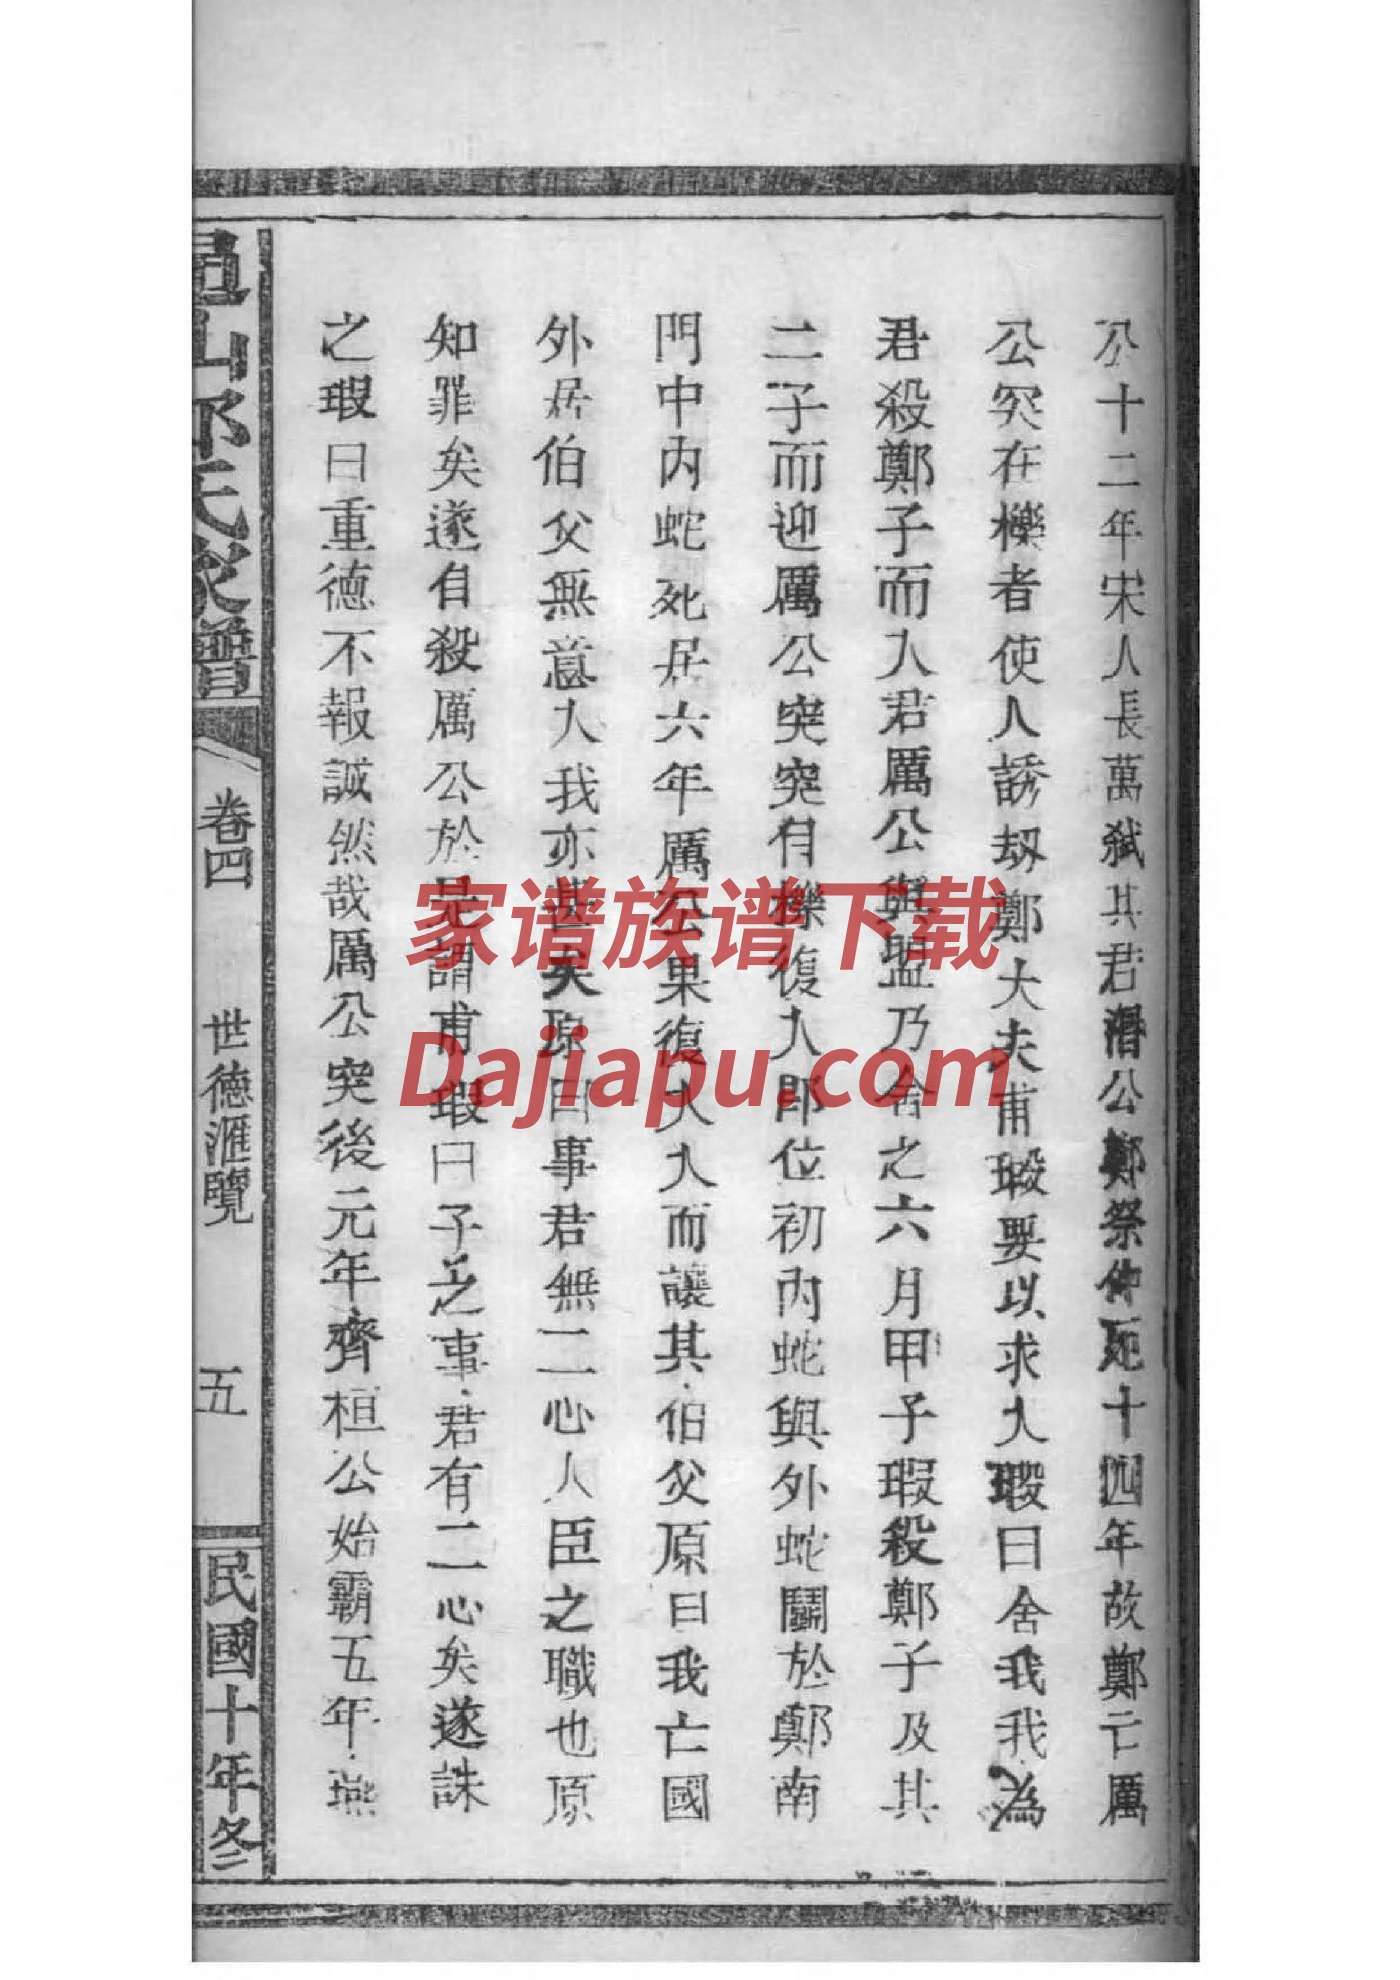 公十二年宋人長萬弒其君湣公鄭祭仲死十四年故鄭亡厲
公突在櫟者使人誘刼鄭大夫甫瑕要以求入瑕曰舍我我為
君殺鄭子而入君厲公與盟乃舍之六月甲子瑕殺鄭子及其
二子而迎厲公突突自櫟復入即位初內蛇與外蛇鬭於鄭南
門中內蛇死居六年厲公果復入入而讓其伯父原曰我亡國
外居伯父無意入我亦甚矣原曰事君無二心人臣之職也原
知罪矣遂自殺厲公於是謂甫瑕曰子之事君有二心矣遂誅
之瑕曰重德不報誠然哉厲公突後元年齊桓公始霸五年燕
山鄭氏家譜
卷四
世德滙覽
五
民國十年冬
家谱族谱下载
Dajiapu.com